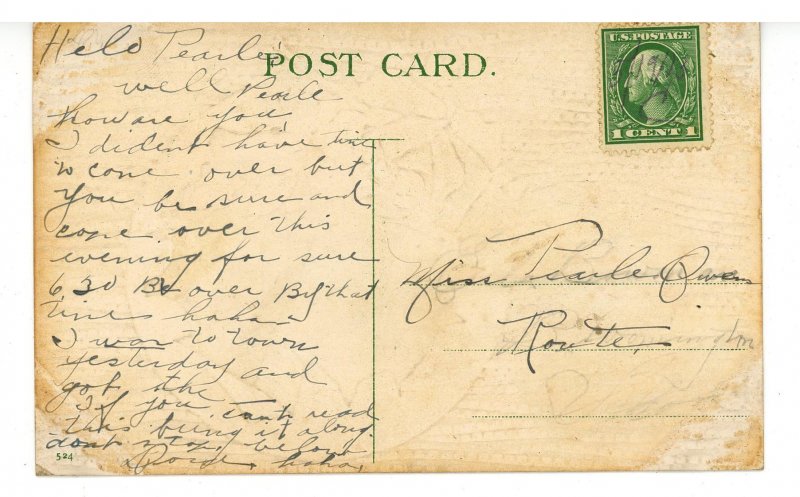 Helo Pearle
POST CARD.
U.S. POSTAGE
1 CENT 1
well Pearle
how are you
I dident have time
to come over but
you be sure and
come over this
evening for sure
6 30 Be over By that
time haha
I was to town
yesterday and
got the
If you cant read
this bring it along
dont
haha
524
Miss Pearle Owens
Route,